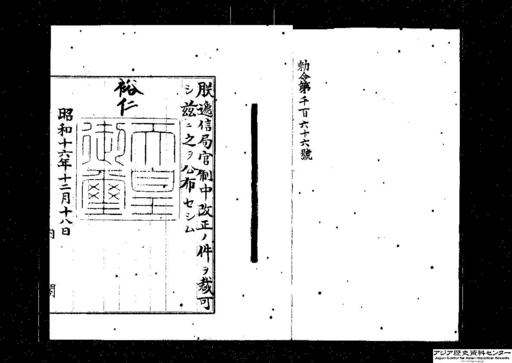 勅令第千百六十六號
朕遞信局官制中改正ノ件ヲ裁可
シ茲ニ之ヲ公布セシム
裕仁
天皇
御璽
昭和十六年十二月十八日
内閣
アジア歴史資料センター
Japan Center for Asian Historical Records